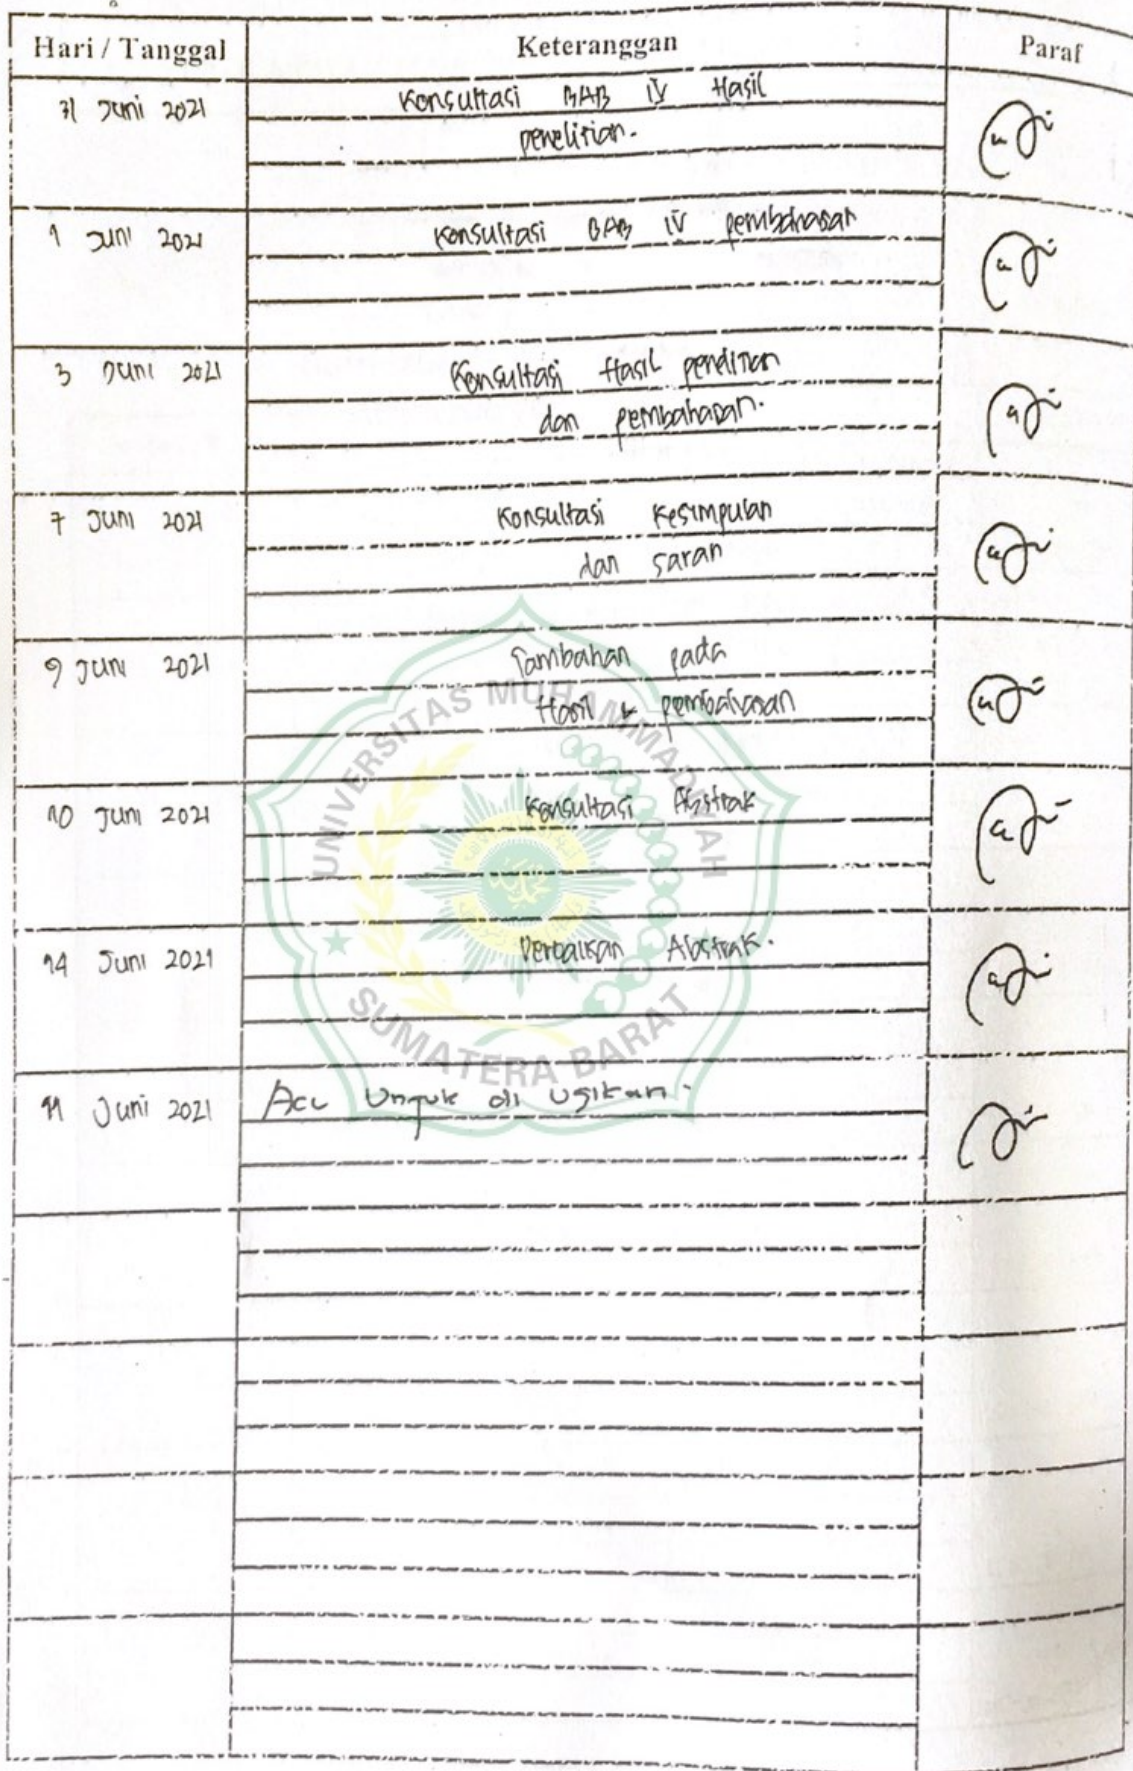 Hari / Tanggal Keteranggan Paraf
31 Juni 2021 Konsultasi BAB IV Hasil
penelitian.
1 Juni 2021 Konsultasi BAB IV pembahasan
3 Juni 2021 Konsultasi Hasil penelitian
dan pembahasan.
7 Juni 2021 Konsultasi Kesimpulan
dan saran
9 Juni 2021 Tambahan pada
Hasil & pembahasan
10 Juni 2021 Konsultasi Abstrak
14 Juni 2021 Perbaikan Abstrak.
Juni 2021 Acc Untuk di Ujikan.
UNIVERSITAS MUHAMMADIYAH
SUMATERA BARAT